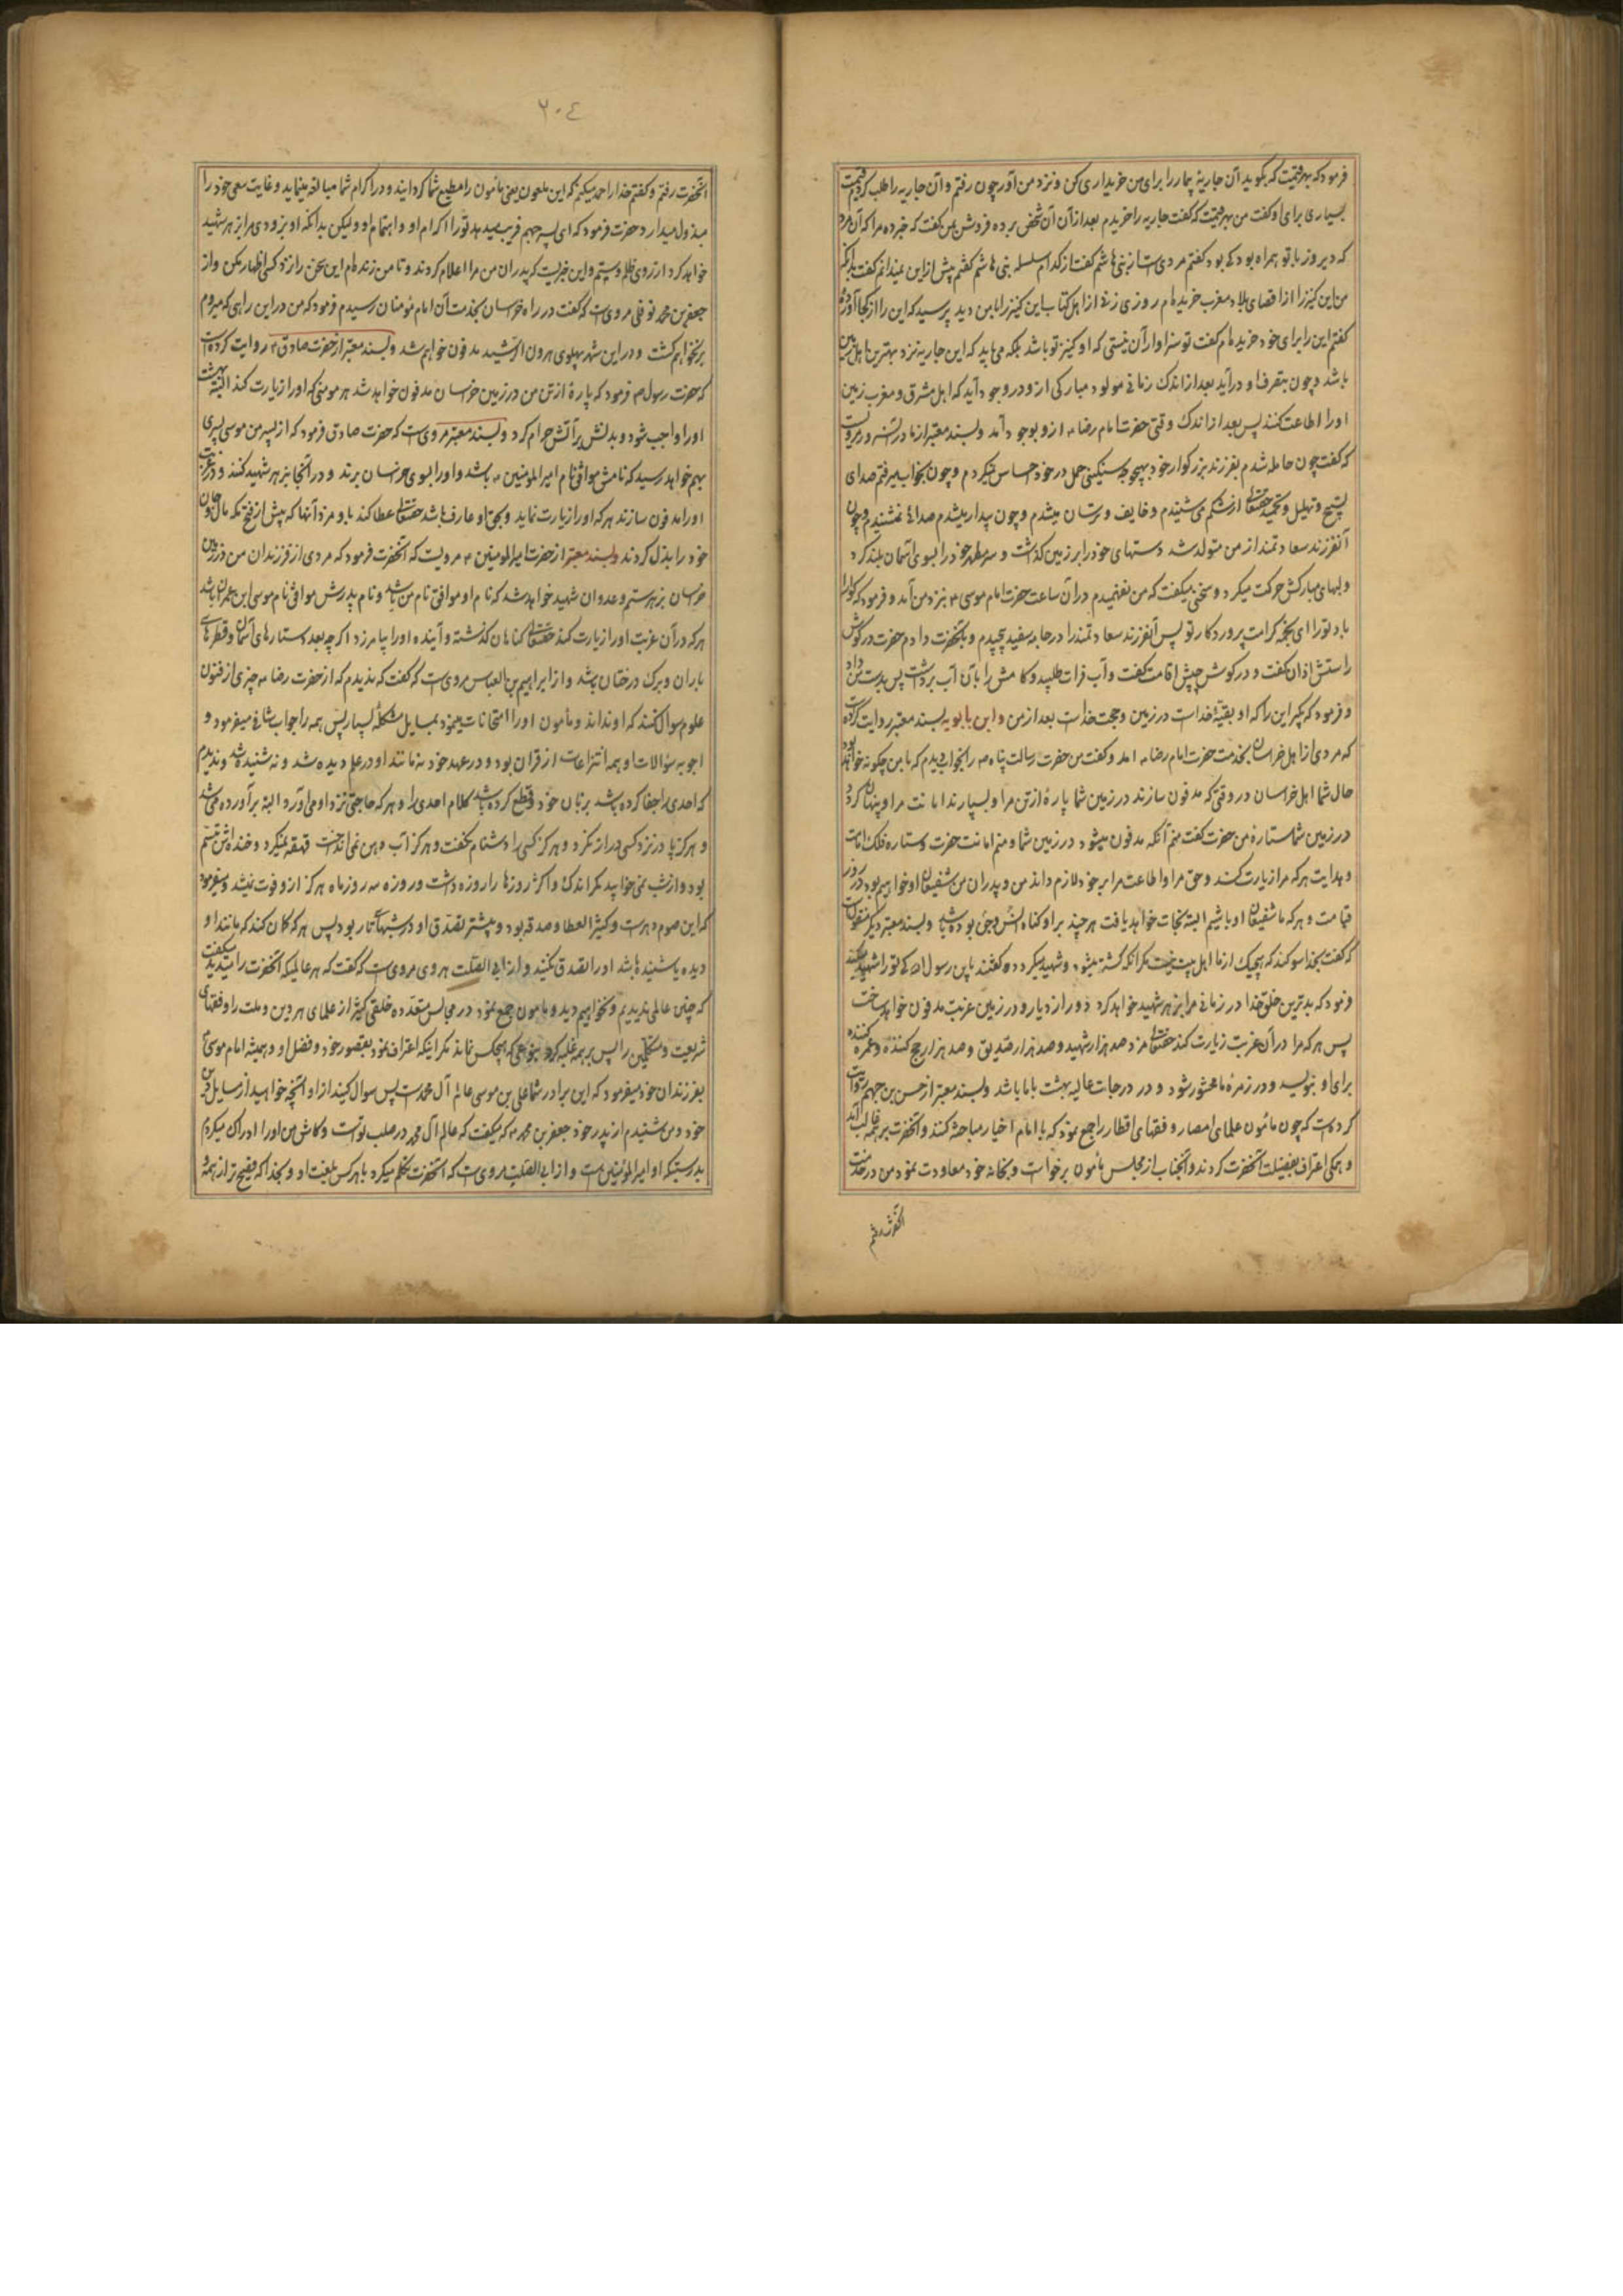 فرمود که بهر قیمت که بگوید آن جاریهٔ بیمار را برای من خریداری کن و نزد من آور چون رفتم و آن جاریه را طلب کردم قیمت
بسیاری برای او گفت من بهر قیمت که گفت جاریه را خریدم بعد از آن آن شخص برده فروش بمن گفت که خبر ده مرا که آن مرد
که دیروز با تو همراه بود که بود گفتم مردیست از بنی هاشم گفت از کدام سلسله بنی هاشم گفتم پیش از این نمیدانم گفت بدانکه
من این کنیز را از اقصای بلاد مغرب خریده‌ام روزی زنی از اهل کتاب این کنیز را با من دید پرسید که این را از کجا آوردهٔ
گفتم این را برای خود خریده‌ام گفت تو سزاوار آن نیستی که او کنیز تو باشد بلکه می باید که این جاریه نزد بهترین اهل زمین
باشد و چون بتصرف او درآید بعد از اندک زمانی مولود مبارکی از و در وجود آید که اهل مشرق و مغرب زمین
او را اطاعت کنند پس بعد از اندک وقتی حضرت امام رضا ۴ ازو بوجود آمد و بسند معتبر از مادر آنسرور مرویست
که گفت چون حامله شدم بفرزند بزرگوار خود بهیچوجه سنگینی حمل در خود احساس نمیکردم و چون بخواب میرفتم صدای
تسبیح و تهلیل و تمجید حقتعالی از شکم می شنیدم و خایف و ترسان میشدم و چون بیدار میشدم صدای نمیشنیدم و چون
آنفرزند سعادتمند از من متولد شد دستهای خود را بر زمین گذاشت و سر مطهر خود را بسوی آسمان بلند کرد
و لبهای مبارکش حرکت میکرد و سخنی میگفت که من نفهمیدم در آن ساعت حضرت امام موسی ۴ بنزد من آمد و فرمود که گوارا
باد تو را ای نجمه کرامت پروردگار تو پس آنفرزند سعادتمند را در جامهٔ سفید پیچیدم و بآنحضرت دادم حضرت در گوش
راستش اذان گفت و در گوش چپش اقامت گفت و آب فرات طلبید و کامش را بآن آب برداشت پس بدست من داد
و فرمود که بگیر این را که او بقیهٔ خداست در زمین و حجت خداست بعد از من و ابن بابویه بسند معتبر روایت کرده
که مردی از اهل خراسان بخدمت حضرت امام رضا ۴ آمد و گفت من حضرت رسالت پناه ص را بخواب دیدم که با من چگونه خواهد بود
حال شما اهل خراسان در وقتی که مدفون سازند در زمین شما پارهٔ از تن مرا و بسپارند امانت مرا و پنهان گردد
در زمین شما ستارهٔ من حضرت گفت منم آنکه مدفون میشود در زمین شما و منم امانت حضرت و ستاره فلک امامت
و هدایت هر که مرا زیارت کند و حق مرا و اطاعت مرا بر خود لازم داند من و پدران من شفیعان او خواهیم بود در روز
قیامت و هر که ما شفیعان او باشیم البته نجات خواهد یافت هر چند بر او گناه انس و جن بوده باشد و بسند معتبر دیگر منقولست
که گفت بخدا سوگند که هیچیک از ما اهل بیت نیست مگر آنکه کشته میشود و شهید میگردد گفتند یابن رسول الله که تو را شهید میکند
فرمود که بدترین خلق خدا در زمان من مرا بزهر شهید خواهد کرد دور از دیار و در زمین غربت مدفون خواهد ساخت
پس هر که مرا در آن غربت زیارت کند حقتعالی مزد صد هزار شهید و صد هزار صدیق و صد هزار حج کننده و عمره کننده
برای او بنویسد و در زمرهٔ ما محشور شود و در درجات عالیه بهشت با ما باشد و بسند معتبر از حسن بن جهم روایت
کرده است که چون مأمون علمای امصار و فقهای اقطار را جمع نمود که با امام اخیار مباحثه کنند و آنحضرت بر همه غالب آمد
و همگی اعتراف بفضیلت آنحضرت کردند و آنجناب از مجلس مأمون برخواست و بخانه خود معاودت نمود من در خدمت
آنحضرت رفتم
۲۰۴
آنحضرت رفتم و گفتم خدا را حمد میکنم که این ملعون یعنی مأمون را مطیع شما گردانید و در اکرام شما مبالغه مینماید و غایت سعی خود را
مبذول میدارد حضرت فرمود که ای پسر جهم فریب ندهد تو را اکرام او و اهتمام او ولیکن بدانکه او بزودی مرا بزهر شهید
خواهد کرد از روی ظلم و ستم و این خبریست که پدران من مرا اعلام کردند و تا من زنده‌ام این سخن را نزد کسی اظهار مکن و از
جعفر بن محمد نوفلی مرویست که گفت در راه خراسان بخدمت آن امام مؤمنان رسیدم فرمود که من در این راهی که میروم
بر نخواهم گشت و در این شهر بپهلوی هرون الرشید مدفون خواهم شد و بسند معتبر از حضرت صادق ۴ روایت کرده است
که حضرت رسول ص فرمود که پارهٔ از تن من در زمین خراسان مدفون خواهد شد هر مومنی که او را زیارت کند البته بهشت
او را واجب شود و بدنش بر آتش حرام گردد و بسند معتبر مرویست که حضرت صادق فرمود که از پسر من موسی پسری
بهم خواهد رسید که نامش موافق نام امیرالمومنین ۴ باشد و او را بسوی خراسان برند و در آنجا بزهر شهید کنند و در غربت
او را مدفون سازند هر که او را زیارت نماید و بحق او عارف باشد حقتعالی عطا کند باو مزد آنها که پیش از فتح مکه مال و جان
خود را بذل کردند و بسند معتبر از حضرت امیرالمومنین ۴ مرویست که آنحضرت فرمود که مردی از فرزندان من در زمین
خراسان بزهر ستم و عدوان شهید خواهد شد که نام او موافق نام من باشد و نام پدرش موافق نام موسی ابن عمران باشد
هر که در آن غربت او را زیارت کند حقتعالی گناهان گذشته و آینده او را بیامرزد اگر چه بعدد ستارهای آسمان و قطرهای
باران و برگ درختان باشد و از ابراهیم بن العباس مرویست که گفت که ندیدم که از حضرت رضا ۴ چیزی از فنون
علوم سوال کنند که او نداند و مأمون او را امتحانات مینمود بمسایل مشکلهٔ بسیار پس همه را جواب شافی میفرمود و
اجوبه سؤالات او همه انتزاعات از قران بود و در عهد خود نه مانند او در علم دیده شد و نه شنیده شد و ندیدم
که احدی را جفا کرده باشد بزبان خود و قطع کرده باشد کلام احدی را و هر که حاجتی نزد او می آورد البته برآورده می شد
و هرگز پا در نزد کسی دراز نکرد و هرگز کسی را دشنام نگفت و هرگز آب دهن نمی انداخت قهقهه نمیکرد و خنده‌اش تبسم
بود و از شب نمی خوابید مگر اندک و اکثر روزها را روزه داشت و روزه سه روز ماه هرگز ازو فوت نمیشد و میفرمود
که این صوم دهر است و کثیر العطا و صدقه بود و بیشتر تصدق او در شبهای تار بود پس هر که گمان کند که مانند او
دیده یا شنیده باشد او را تصدیق مکنید و از ابی الصلت هروی مرویست که گفت که هر عالمیکه آنحضرت را میدید میگفت
که چنین عالمی ندیدیم و نخواهیم دید و مامون جمع نمود در مجالس متعدده خلقی کثیر از علمای هر دین و ملت را و فقهای
شریعت و متکلمین را پس بر همه غلبه کرد بنوعی که هیچکس نماند مگر اینکه اعتراف نمود بقصور خود و فضل او و همیشه امام موسی ۴
بفرزندان خود میفرمود که این برادر شما علی بن موسی عالم آل محمد است پس سوال کنید از او آنچه خواهید از مسایل دین
خود و من شنیدم از پدر خود جعفر بن محمد ۴ که میگفت که عالم آل محمد در صلب تو است و کاش من او را ادراک میکردم
بدرستیکه او امیرالمؤمنین است و از ابی الصلت مرویست که آنحضرت تکلم میکرد با هر کس بلغت او و بخدا که فصیح تر از همه و